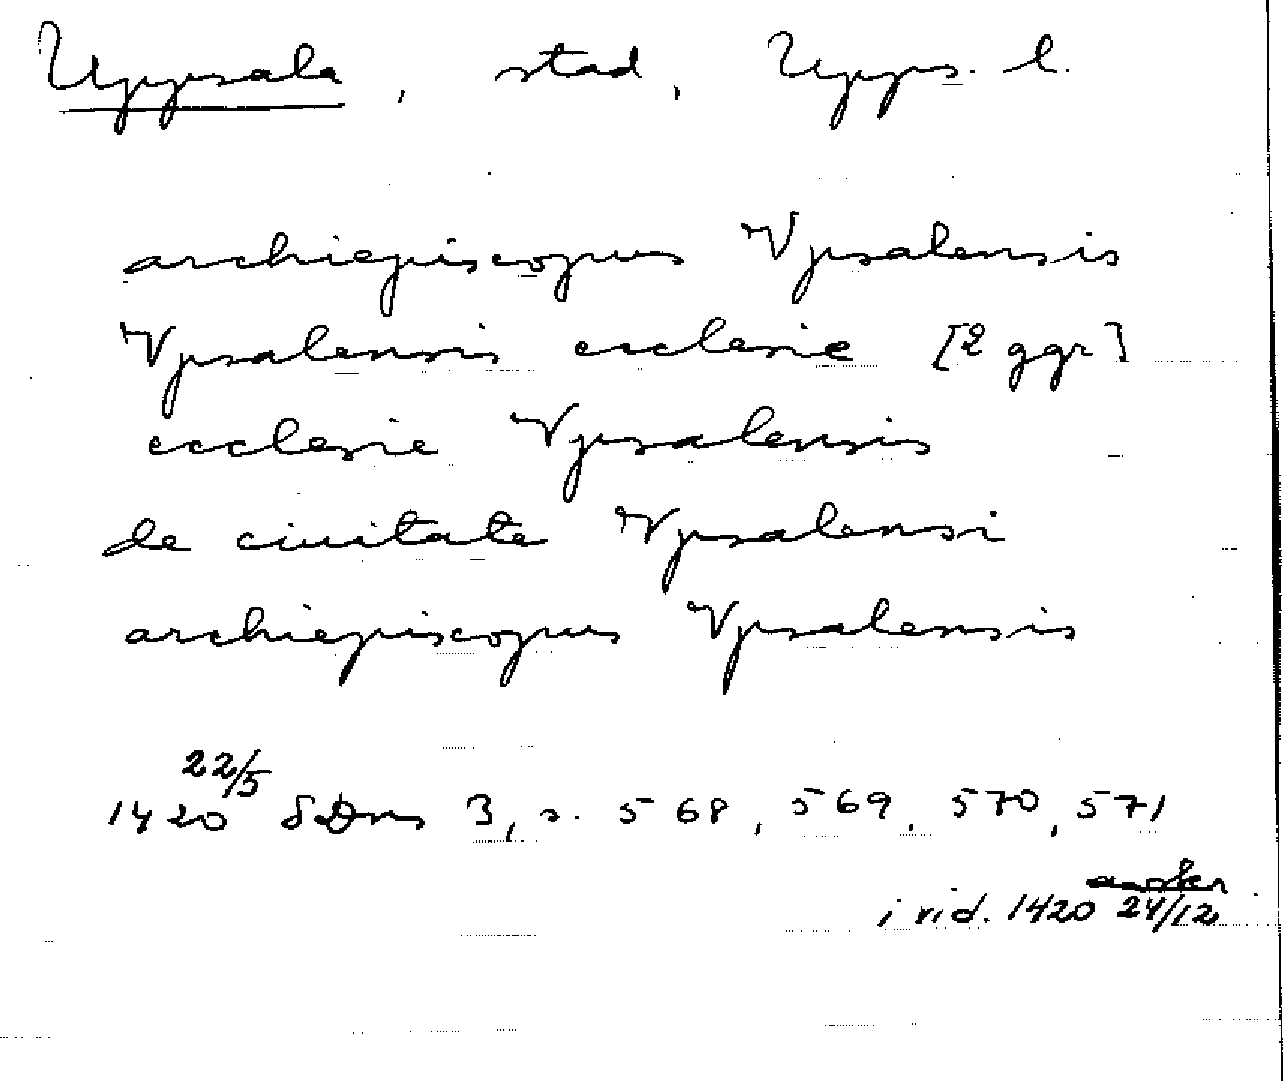 Uppsala, stad, Upps. l.
archiepiscopus Vpsalensis
Vpsalensis ecclesie [2 ggr]
ecclesie Vpsalensis
de ciuitate Vpsalensi
archiepiscopus Vpsalensis
22/5
1420 SDns 3, s. 568, 569, 570, 571
i vid. 1420 24/12